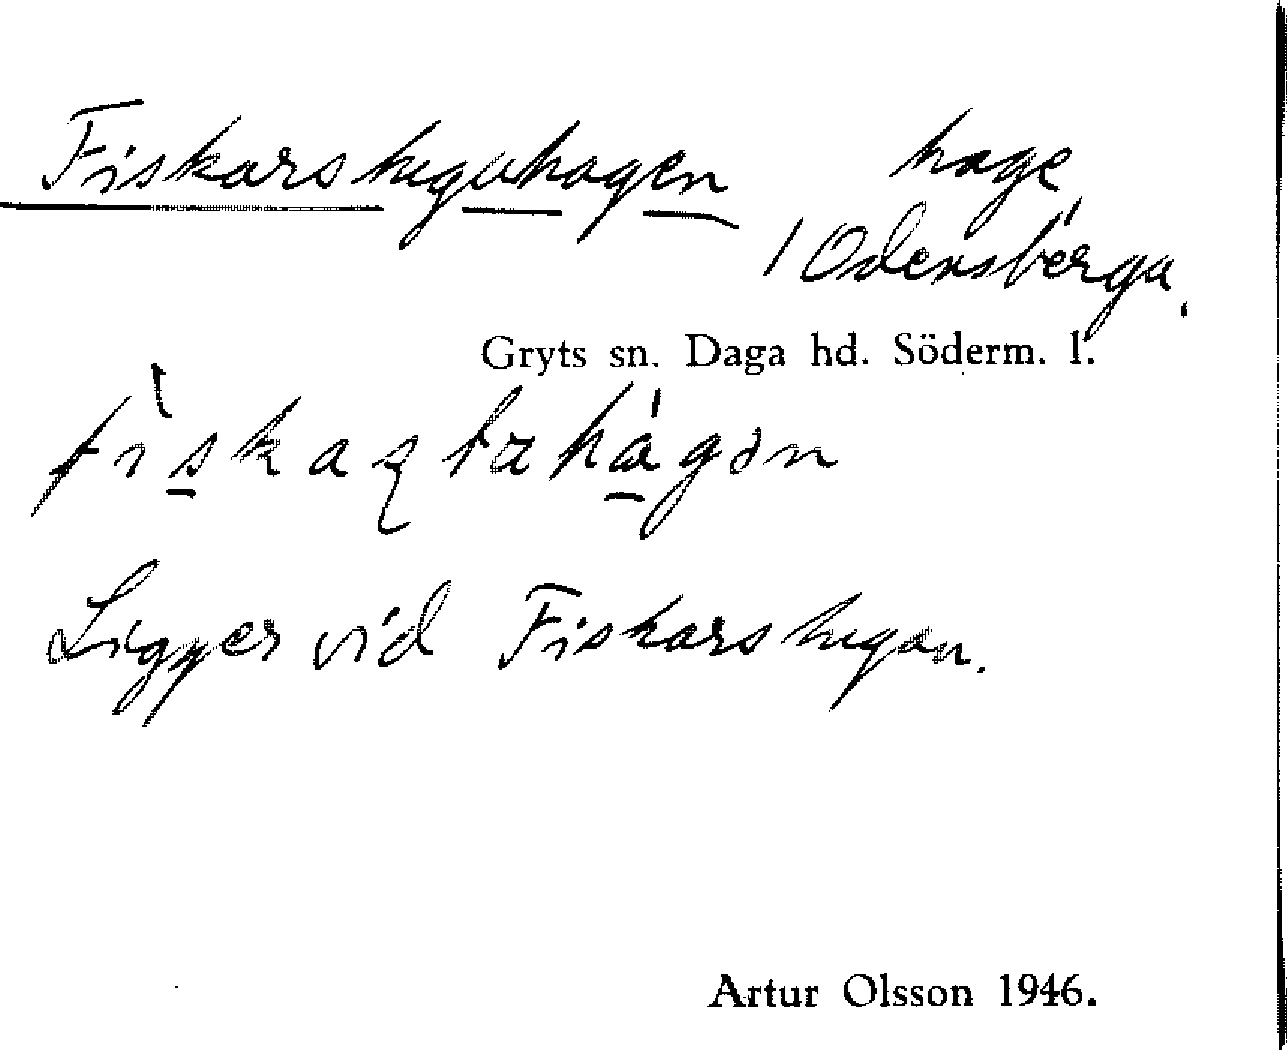 Fiskarstuguhagen hage
1 Odensberga.
Gryts sn. Daga hd. Söderm. l.
Ligger vid Fiskarstugan.
Artur Olsson 1946.